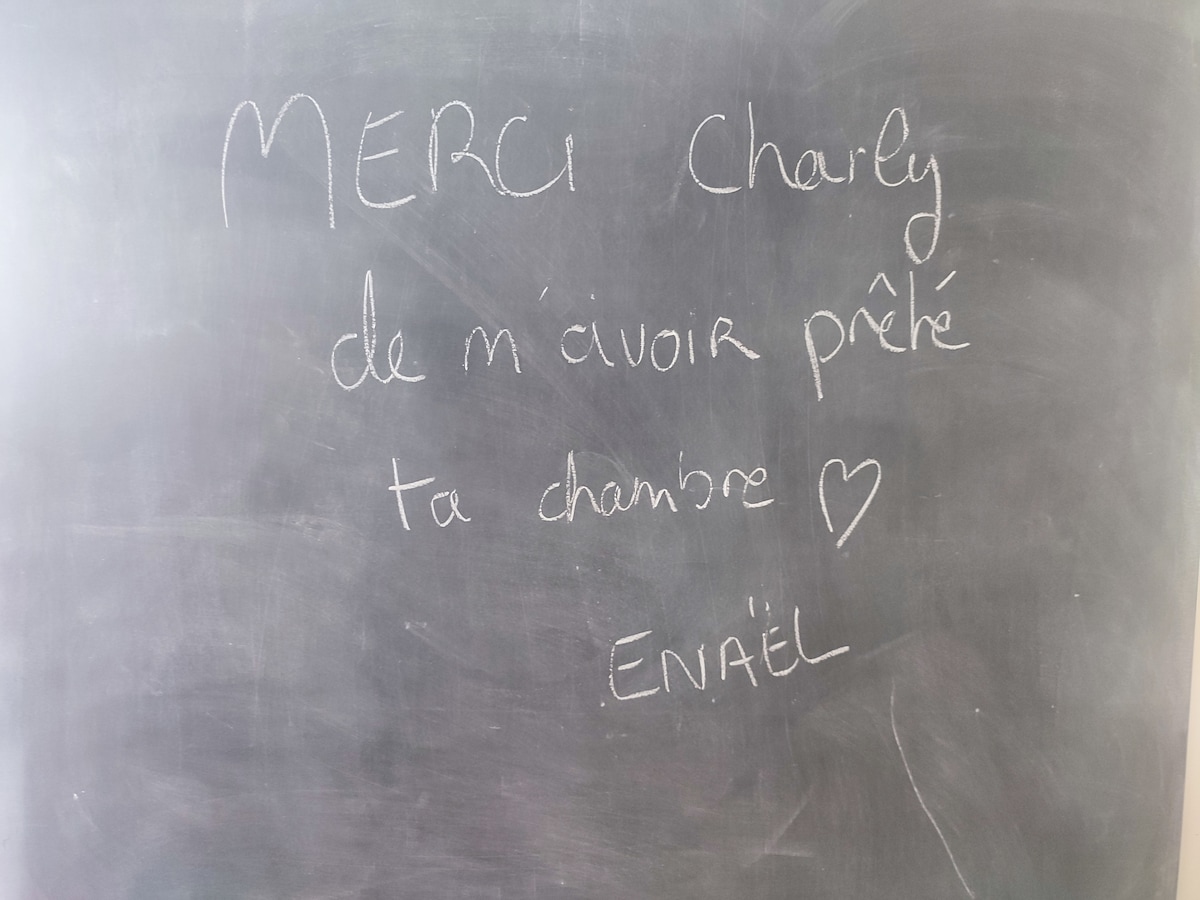 MERCi Charly
de m'avoir prêté
ta chambre ♡
ENAËL